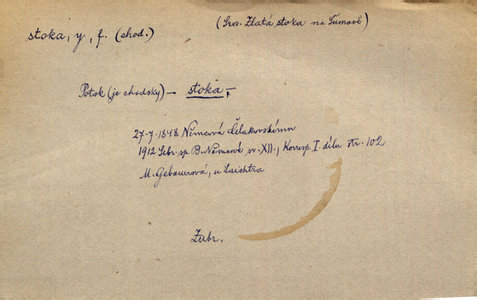 stoka, y, f. (chod.)
(Srov. Zlatá stoka na Šumavě)
Potok (je chodsky) – stoka –
27-7-1848 Němcová Čelakovskému
1912 Sebr. sp. B. Němcové sv. XII., Korresp. I. dílu str. 102
M. Gebauerová, u Laichtra
Zubr.